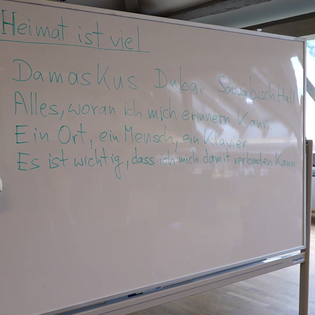 Heimat ist viel
Damaskus Dubai Schwäbisch Hall
Alles, woran ich mich erinnern kann
Ein Ort, ein Mensch, ein Klavier
Es ist wichtig, dass ich mich damit verbinden kann